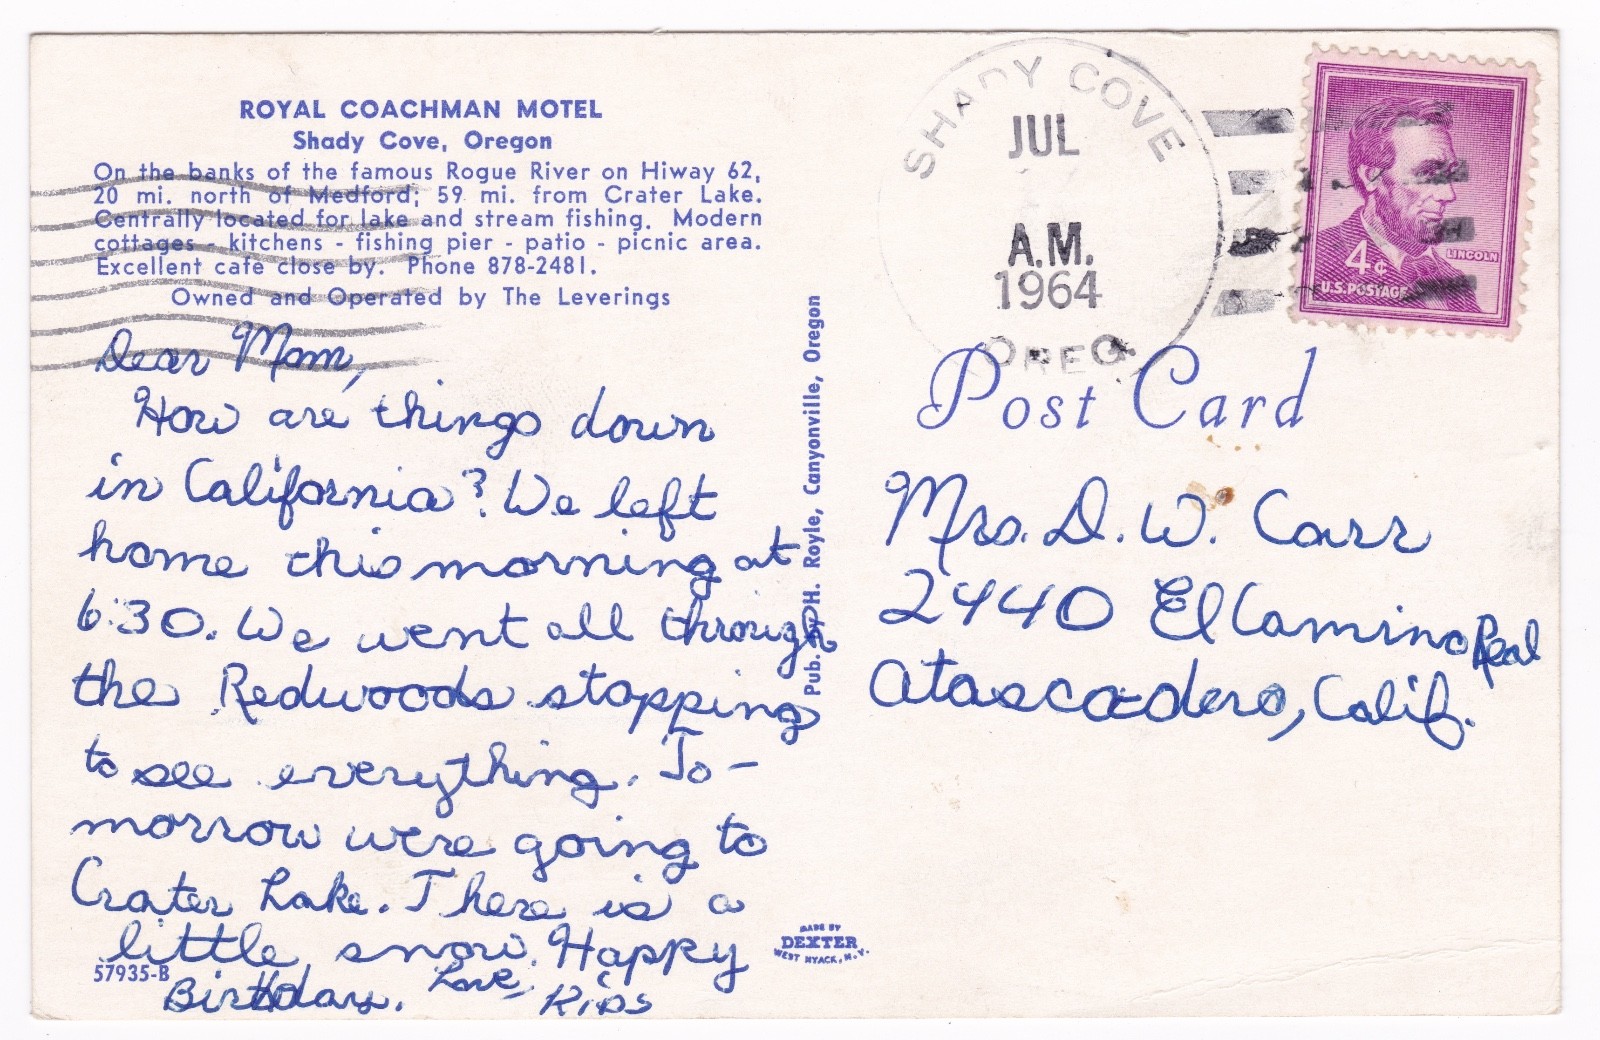 ROYAL COACHMAN MOTEL
Shady Cove, Oregon
On the banks of the famous Rogue River on Hiway 62,
20 mi. north of Medford; 59 mi. from Crater Lake.
Centrally located for lake and stream fishing. Modern
cottages - kitchens - fishing pier - patio - picnic area.
Excellent cafe close by. Phone 878-2481.
Owned and Operated by The Leverings
Dear Mom,
How are things down
in California? We left
home this morning at
6:30. We went all through
the Redwoods stopping
to see everything. To-
morrow were going to
Crater Lake. There is a
little snow. Happy
Birthday. Love,
57935-B
Pub. by H. Royle, Canyonville, Oregon
MADE BY
DEXTER
WEST NYACK, N.Y.
SHADY COVE
JUL
A.M.
1964
OREG.
4¢
LINCOLN
U.S. POSTAGE
Post Card
Mrs. D. W. Carr
2440 El Camino Real
Atascadero, Calif.